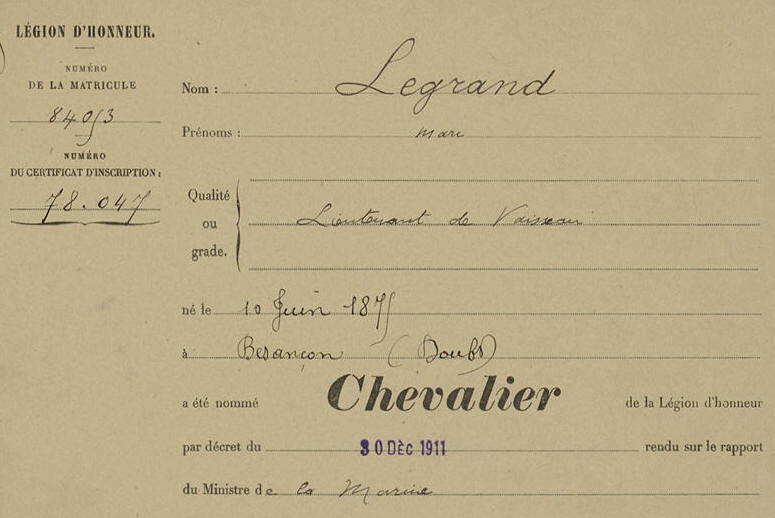 LÉGION D'HONNEUR.
NUMÉRO
DE LA MATRICULE
84053
NUMÉRO
DU CERTIFICAT D'INSCRIPTION :
78.047
Nom : Legrand
Prénoms : Marc
Qualité
ou
grade.
Lieutenant de Vaisseau
né le 10 Juin 1875
à Besançon (Doubs)
a été nommé Chevalier de la Légion d'honneur
par décret du 30 Déc 1911 rendu sur le rapport
du Ministre de la Marine